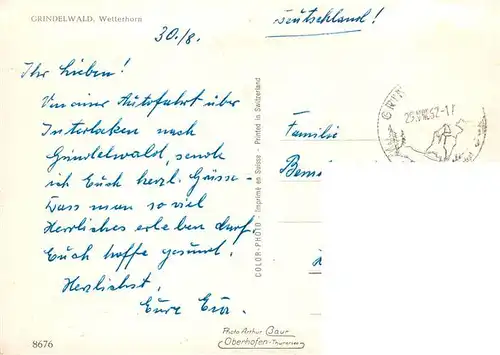 GRINDELWALD, Wetterhorn
30./8.
Deutschland!
Ihr Lieben!
Von einer Autofahrt über
Interlaken nach
Grindelwald, sende
ich Euch herzl. Grüsse.
Dass man so viel
Herrliches erleben darf.
Euch hoffe gesund.
Herzlichst,
Eure
8676
COLOR-PHOTO - Imprimé en Suisse - Printed in Switzerland
GRIN
25.VIII.62-17
Familie
Photo Arthur Baur
Oberhofen-Thunersee